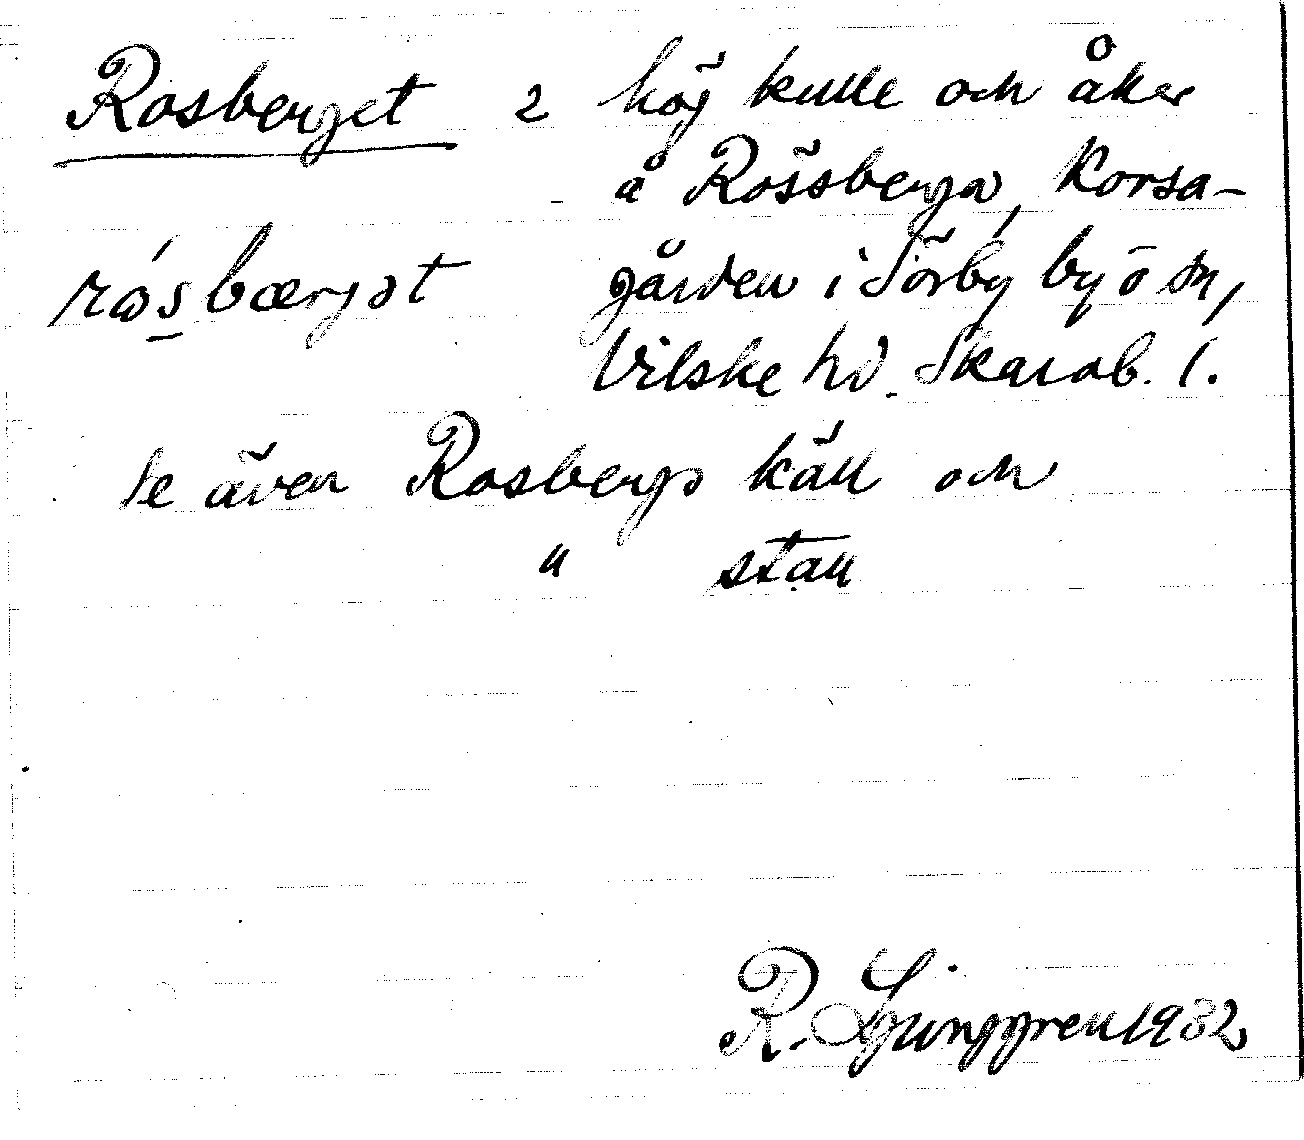 Rosberget 2 hög kulle och åker
å Rössberga, Korsa-
rósbærjət gården i Sörby by ö sn,
Vilske hd. Skarab. l.
Se även Rosbergs käll och
" stall
R. Ljunggren 1932